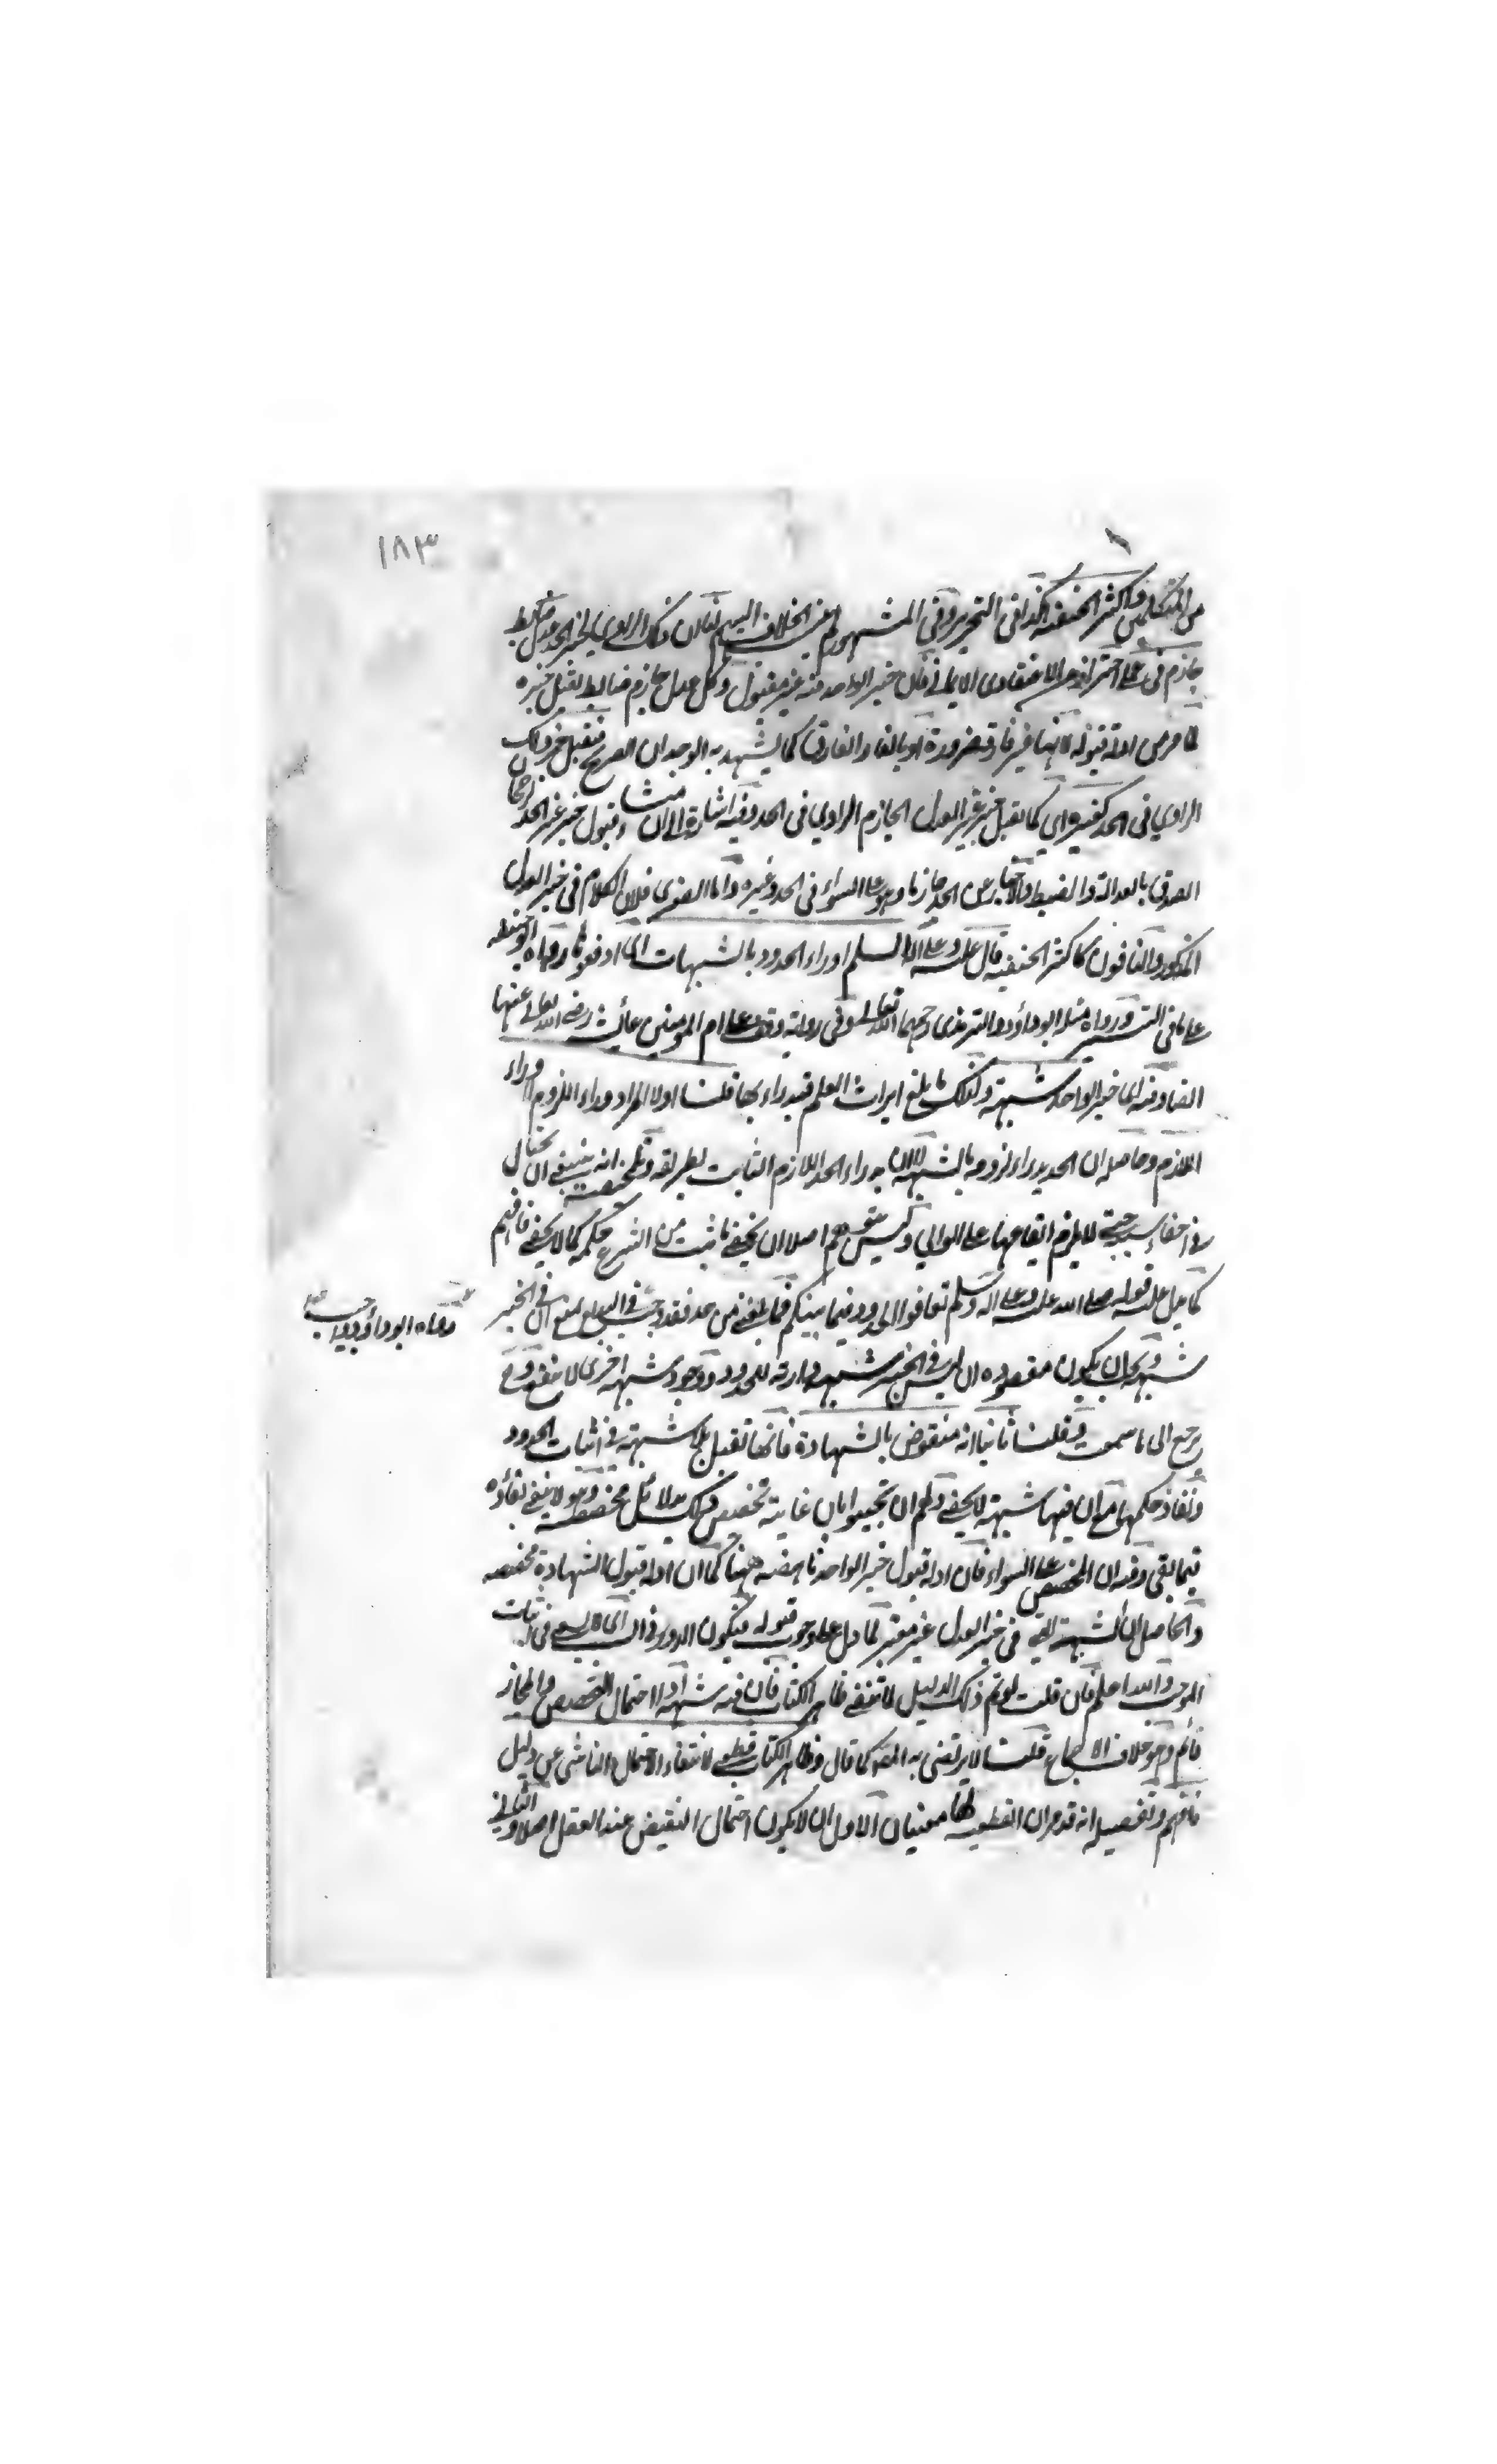 ١٨٣
من المتكلمين واكثر الحنفية كذا في التحرير وفي المشهور لم ينسب الخلاف اليهم لنا ان ذلك الراوي لخبر الحد عدل ضابط
جازم في عملي احتراز عن الاعتقادي الايماني فان خبر الواحد فيه غير مقبول وكل عدل جازم ضابط يقبل خبره
لما مر من ادلة قبوله لانها غير فارقة ضرورة او بالغاء الفارق كما يشهد به الوجدان الصريح فيقبل خبر ذلك
الراوي في الحد كغيره اي كما يقبل خبر غير العدل الجازم الراوي في الحد وفيه اشارة الى ان منشاء قبول خبر غير الحد رجحان
الصدق بالعدالة والضبط والاخبار عن الحد جازما وهو على السواء في الحد وغيره واما الصغرى فلان الكلام في خبر العدل
المذكور والنافون كاكثر الحنفية قال عليه وعلى اله السلم ادراء الحدود بالشبهات اي ادفعوها رواه ابو حنيفة
على ما في التيسير ورواه مثله ابو داؤد والترمذي رحمهما الله تعالى وفي رواية وقف على ام المؤمنين عائشة رضي الله تعالى عنها
ايضا وفيه اي خبر الواحد شبهة ولذلك ما بلغ ايراث العلم فيدراء بها قلنا اولا المراد دراء اللزوم لا دراء
اللازم وحاصله ان الحد يدراء لزومه بالشبهة لا ان يدراء الحد اللازم الثابت بطريقه وتلخيصه انه ينبغي ان يحتال
في اخفاء سبب حتى لا يلزم ايقاعها على الوالي وليس بمتوهم اصلا ان يخفي ما ثبت من الشرع حكمه كما لا يخفى فافهم
كما يدل عليه قوله صلى الله عليه وعلى اله وسلم تعافوا الحدود فيما بينكم فما بلغني من حد فقد وجب في البديع يمنع ان في الخبر
رواه ابو داؤد
شبهة ويجب ان يكون مقصوده ان ليس في الخبر شبهة دارئة للحدود ووجود شبهة اخرى لا تنفع
يرجع الى ما سمعت وقلنا ثانيا انه منقوض بالشهادة فانها تقبل بلا شبهة في اثبات الحدود
ونفاذ حكمها مع ان فيها شبهة لا يخفى ولهم ان يجيبوا بان غايته تخصيص ذلك بدلائل مخصصة وهو لا ينفي نفاؤه
فيما بقي وفيه ان المخصص على السواء فان ادلة قبول خبر الواحد ناهضة ههنا كما ان ادلة قبول الشهادة مخصصة
والحاصل ان الشبهة التي في خبر العدل غير معتبر لما دل على وجوب قبوله فيكون الدراء في السبب اي لا يسعى في اثبات
الموجب والله اعلم فان قلت لو تم ذلك الدليل لانتفى بظاهر الكتاب فان فيه شبهة اذ احتمال التخصيص والمجاز
قائم وهو خلاف الاجماع قلت لا يرتضي به المصنف كما قال وظاهر الكتاب قطعي لانتفاء الاحتمال الناشي عن دليل
فافهم وتفصيله انه قد مر ان القطعية لها معنيان الاول ان لا يكون احتمال النقيض عند العقل اصلا والثاني